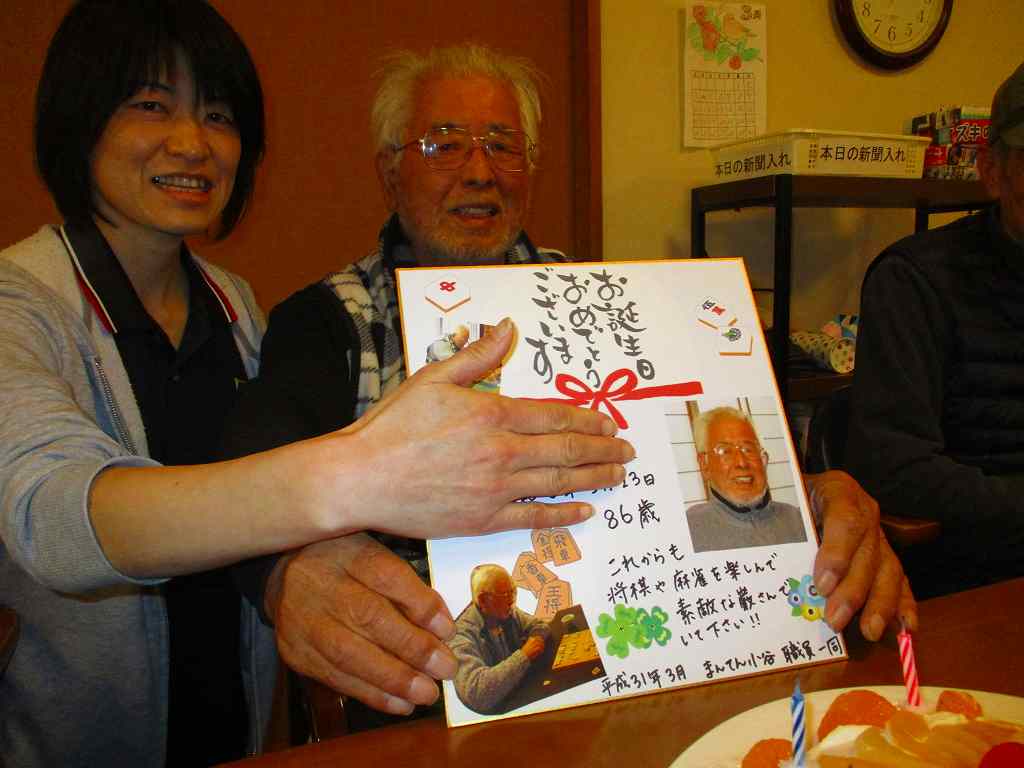 お誕生日
おめでとう
ございます
86歳
これからも
将棋や麻雀を楽しんで
素敵な巌さんで
いて下さい!!
平成31年3月 まんてん小谷 職員一同
金将
飛車
王将
3月
本日の新聞入れ
本日の新聞入れ
ズキの
8 7 6 5 4